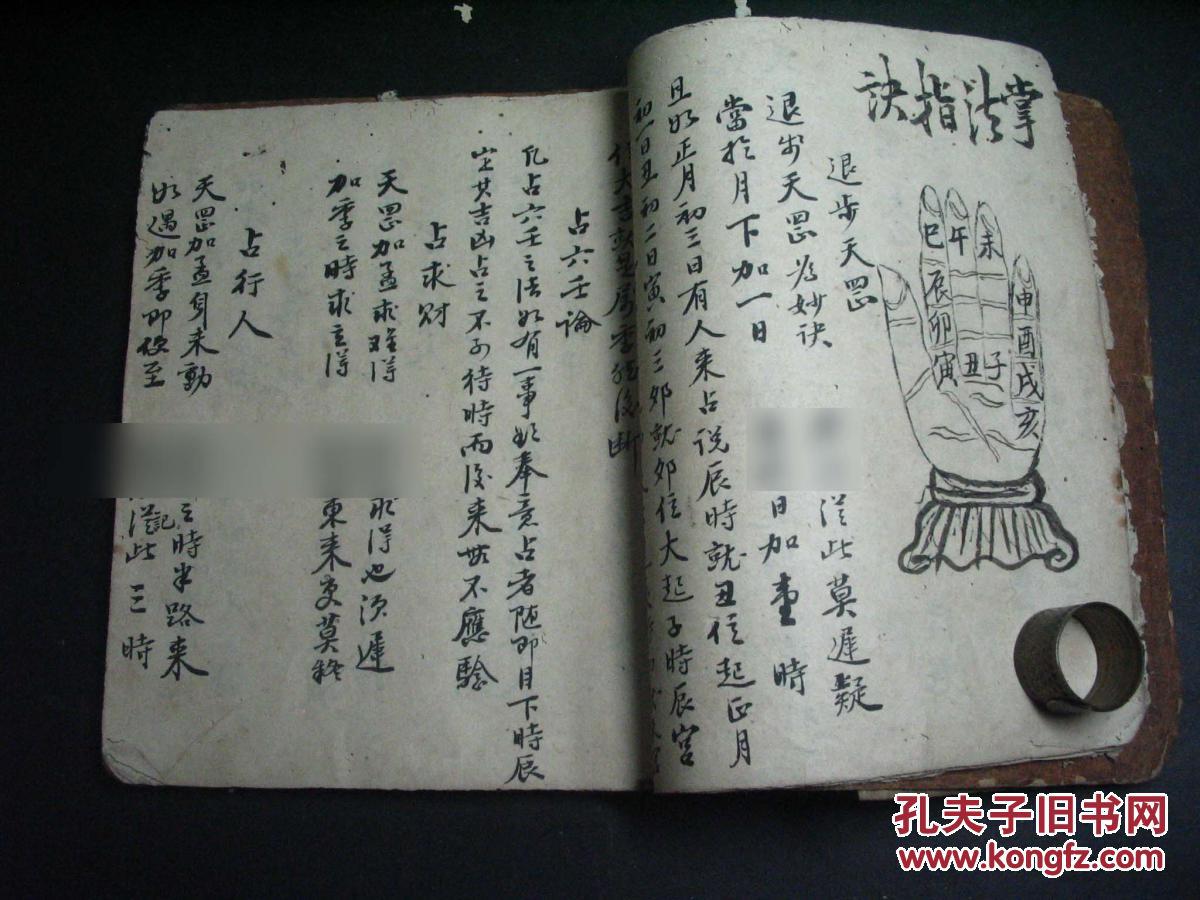 掌法指訣
巳 午 未 申
辰 酉
卯 戌
寅 丑 子 亥
退步天罡
從此莫遲疑
退步天罡為妙訣
日加 時
當於月下加一日
且如正月初三日有人來占說辰時就丑位起正月
初一日丑初二日寅初三卯就卯位大起子時辰宮
占六壬論
凡占六壬之法如有一事如奉意占者随即目下時辰
其吉凶占之不可待時而後來無不應驗
占求财
天罡加孟求难得
取得也須遲
加季之時求立得
東來更莫
占行人
天罡加孟身未動
之時半路來
如遇加季即便至
從此三時
孔夫子旧书网
www.kongfz.com